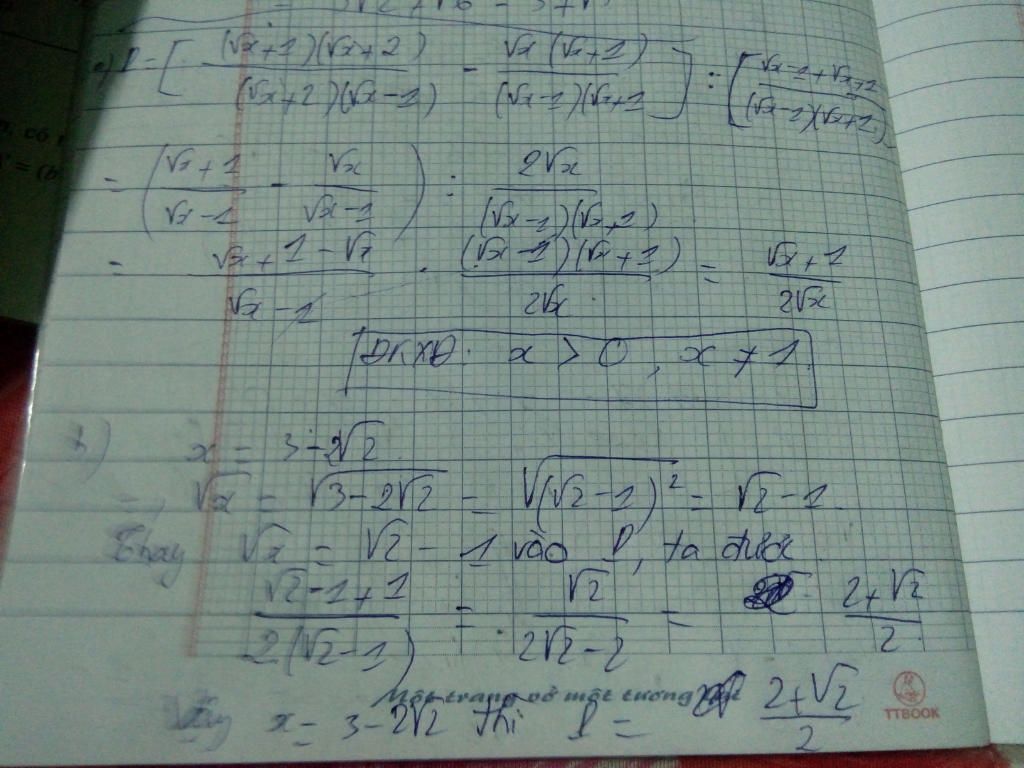 = 3√2 + √6 - 3 + √
a) P = [ (√x+1)(√x+2) / (√x+2)(√x-1) - √x(√x+1) / (√x-1)(√x+1) ] : [ √x-1+√x+1 / (√x-1)(√x+1) ]
= ( √x+1 / √x-1 - √x / √x-1 ) : 2√x / (√x-1)(√x+1)
= √x+1-√x / √x-1 . (√x-1)(√x+1) / 2√x = √x+1 / 2√x
ĐKXĐ: x > 0, x ≠ 1
b) x = 3-2√2
=> √x = √3-2√2 = √(√2-1)² = √2-1
Thay √x = √2-1 vào P, ta được
√2-1+1 / 2(√2-1) = √2 / 2√2-2 = 2+√2 / 2
Một trang vở một tương
TTBOOK
Vậy x = 3-2√2 thì P = 2+√2 / 2